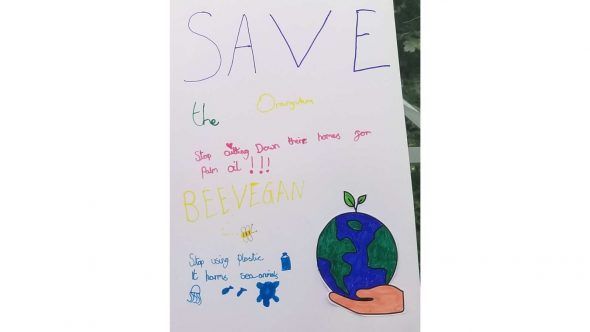 SAVE
the Orangutan
Stop cutting Down homes for
palm oil !!!
BEEVEGAN
Stop using plastic
It harms sea animals